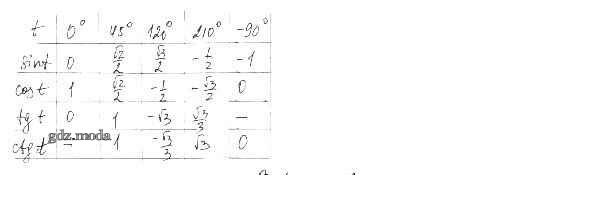 t 0° 45° 120° 210° -90°
sint 0 √2/2 √3/2 -1/2 -1
cost 1 √2/2 -1/2 -√3/2 0
tg t 0 1 -√3 √3/3 —
ctg t — 1 -√3/3 √3 0
gdz.moda